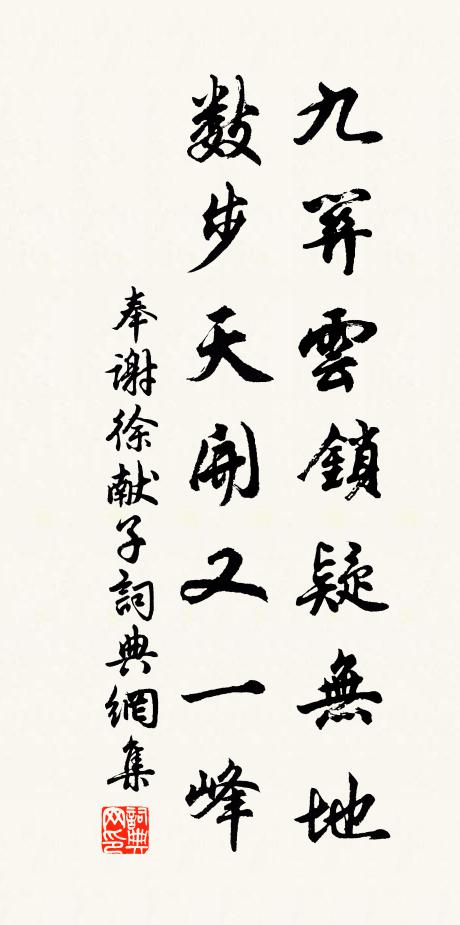 九雲鎖疑無地
数步天開又一峰
奉謝徐献子詞典網集
詞典网印